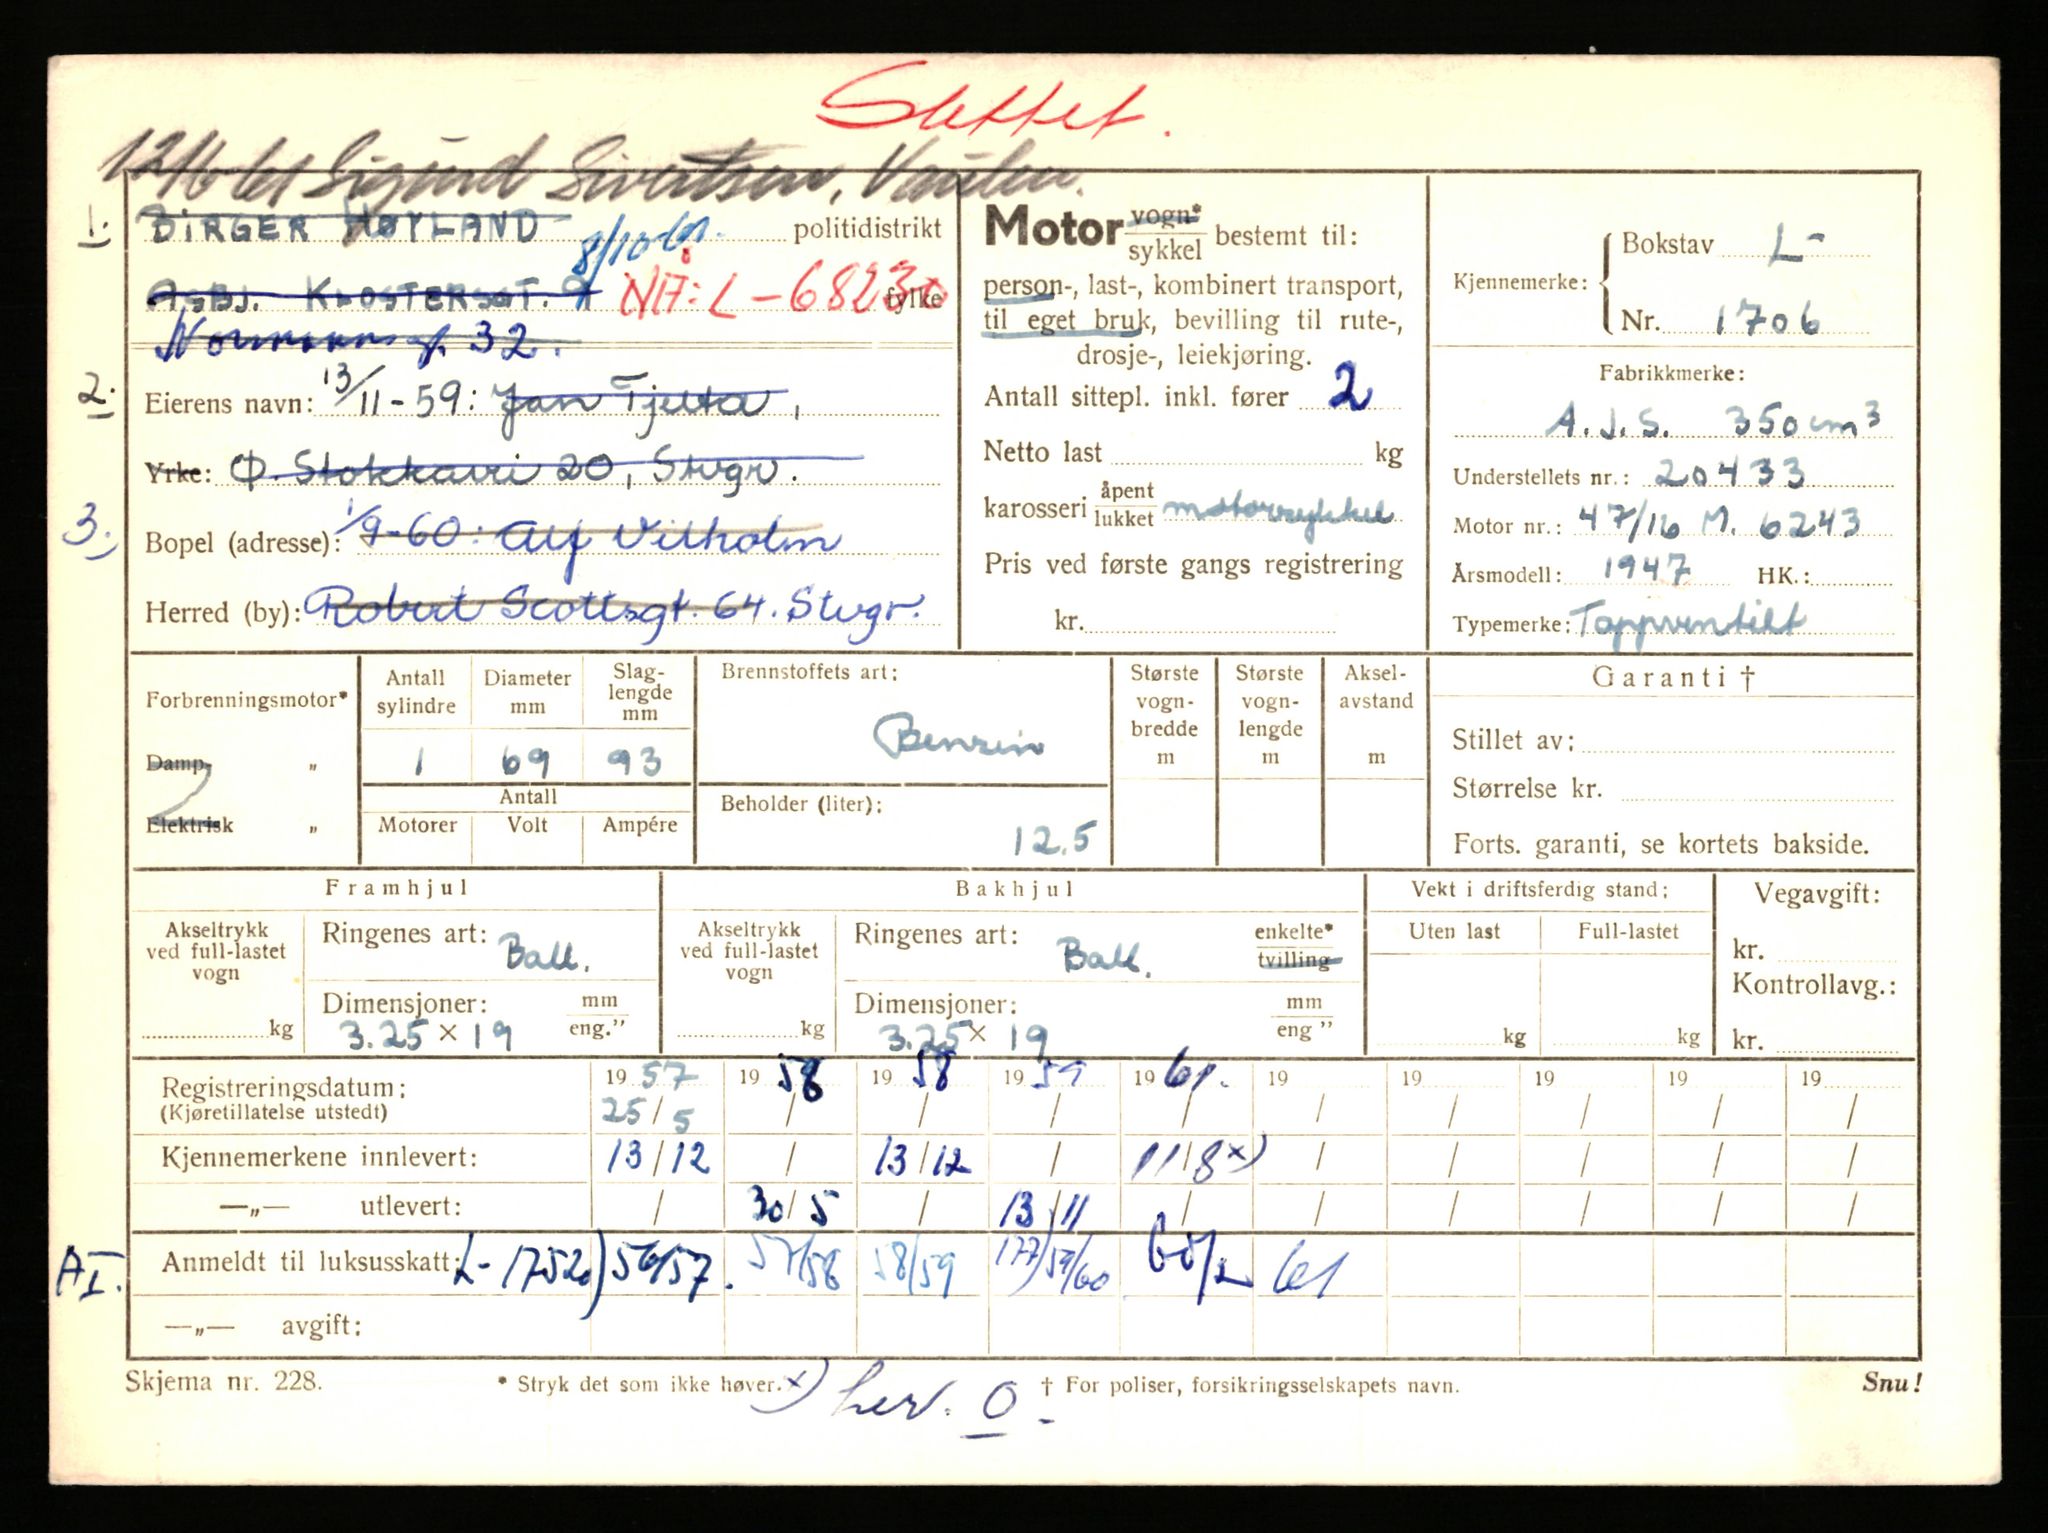 Slettet.
12/6-61 Sigurd Sivertsen, Vaulen.
1. BIRGER HØYLAND politidistrikt
8/10-61.
ASBJ. KLOSTERSGT. 9 NÅ: L - 68230 fylke
32.
2. Eierens navn: 13/11-59: Jan Tjelta,
Yrke: Ø. Stokkavei 20, Stvgr.
3. Bopel (adresse): 1/9-60: Alf Vilholm
Herred (by): Robert Scottsgt. 64. Stvgr.
Motor vogn* / sykkel bestemt til:
person-, last-, kombinert transport,
til eget bruk, bevilling til rute-,
drosje-, leiekjøring.
Antall sittepl. inkl. fører 2
Netto last kg
karosseri åpent / lukket motorsykkel
Pris ved første gangs registrering
kr.
Kjennemerke: Bokstav L-
Nr. 1706
Fabrikkmerke:
A.J.S. 350 cm3
Understellets nr.: 20433
Motor nr.: 47/16 M. 6243
Årsmodell: 1947 HK.:
Typemerke: Toppventilt
Forbrenningsmotor*
Damp- „
Elektrisk „
Antall sylindre Diameter mm Slag-lengde mm
1 69 93
Antall
Motorer Volt Ampére
Brennstoffets art:
Benzin
Beholder (liter):
12.5
Største vogn-bredde m
Største vogn-lengde m
Aksel-avstand m
Garanti †
Stillet av:
Størrelse kr.
Forts. garanti, se kortets bakside.
Framhjul
Akseltrykk ved full-lastet vogn
kg
Ringenes art: Ball.
Dimensjoner: mm / eng."
3.25 × 19
Bakhjul
Akseltrykk ved full-lastet vogn
kg
Ringenes art: Ball. enkelte* / tvilling
Dimensjoner: mm / eng "
3.25 × 19
Vekt i driftsferdig stand:
Uten last Full-lastet
kg kg
Vegavgift:
kr.
Kontrollavg.:
kr.
Registreringsdatum: 19 57 19 58 19 58 19 59 19 61. 19 19 19 19 19
(Kjøretillatelse utstedt) 25/5 / / / / / / / / /
Kjennemerkene innlevert: 13/12 / 13/12 / 11/8 x) / / / / /
—„— utlevert: / 30/5 / 13/11 / / / / / /
AI. Anmeldt til luksusskatt: L-17520) 56/57. 57/58 58/59 177) 59/60 60/2 61
—„— avgift:
Skjema nr. 228. * Stryk det som ikke høver. x) her. 0- † For poliser, forsikringsselskapets navn. Snu!